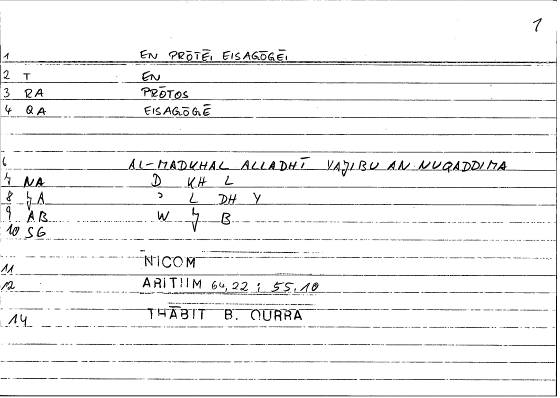 1
1 EN PRŌTĒI EISAGŌGĒI
2 T EN
3 RA PRŌTOS
4 QA EISAGŌGĒ
6 AL-MADKHAL ALLADHĪ YAJIBU AN NUQADDIMA
7 NA D KH L
8 JA ʾ L DH Y
9 AB W J B
10 SG
11 NICOM
12 ARITHM 64,22 : 55.10
14 THĀBIT B. QURRA